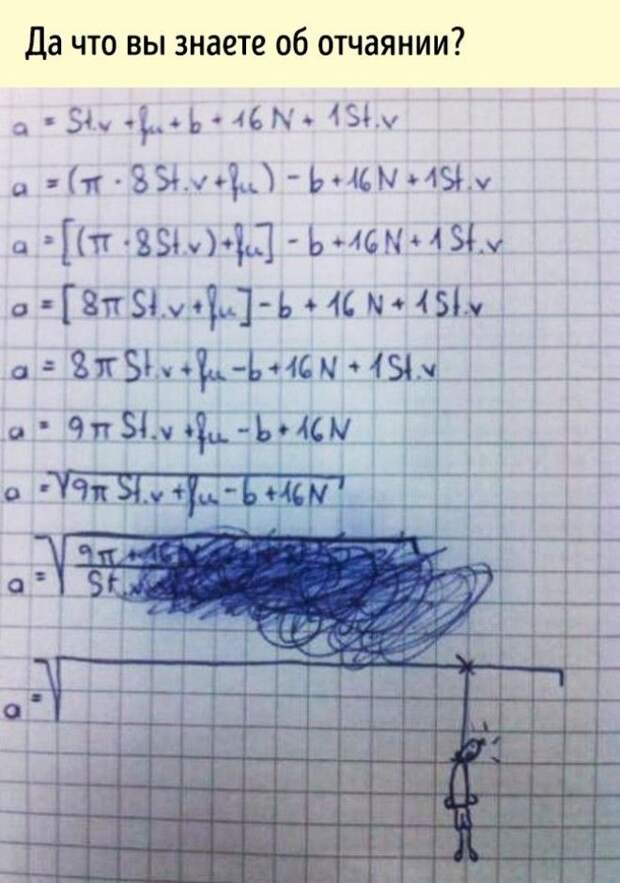 Да что вы знаете об отчаянии?
a = St.v + fu + b + 16N + 1St.v
a = (π · 8St.v + fu) - b + 16N + 1St.v
a = [(π · 8St.v) + fu] - b + 16N + 1St.v
a = [8π St.v + fu] - b + 16N + 1St.v
a = 8π St.v + fu - b + 16N + 1St.v
a = 9π St.v + fu - b + 16N
a = √9π St.v + fu - b + 16N
a = √9π + 16N
St.
a = √